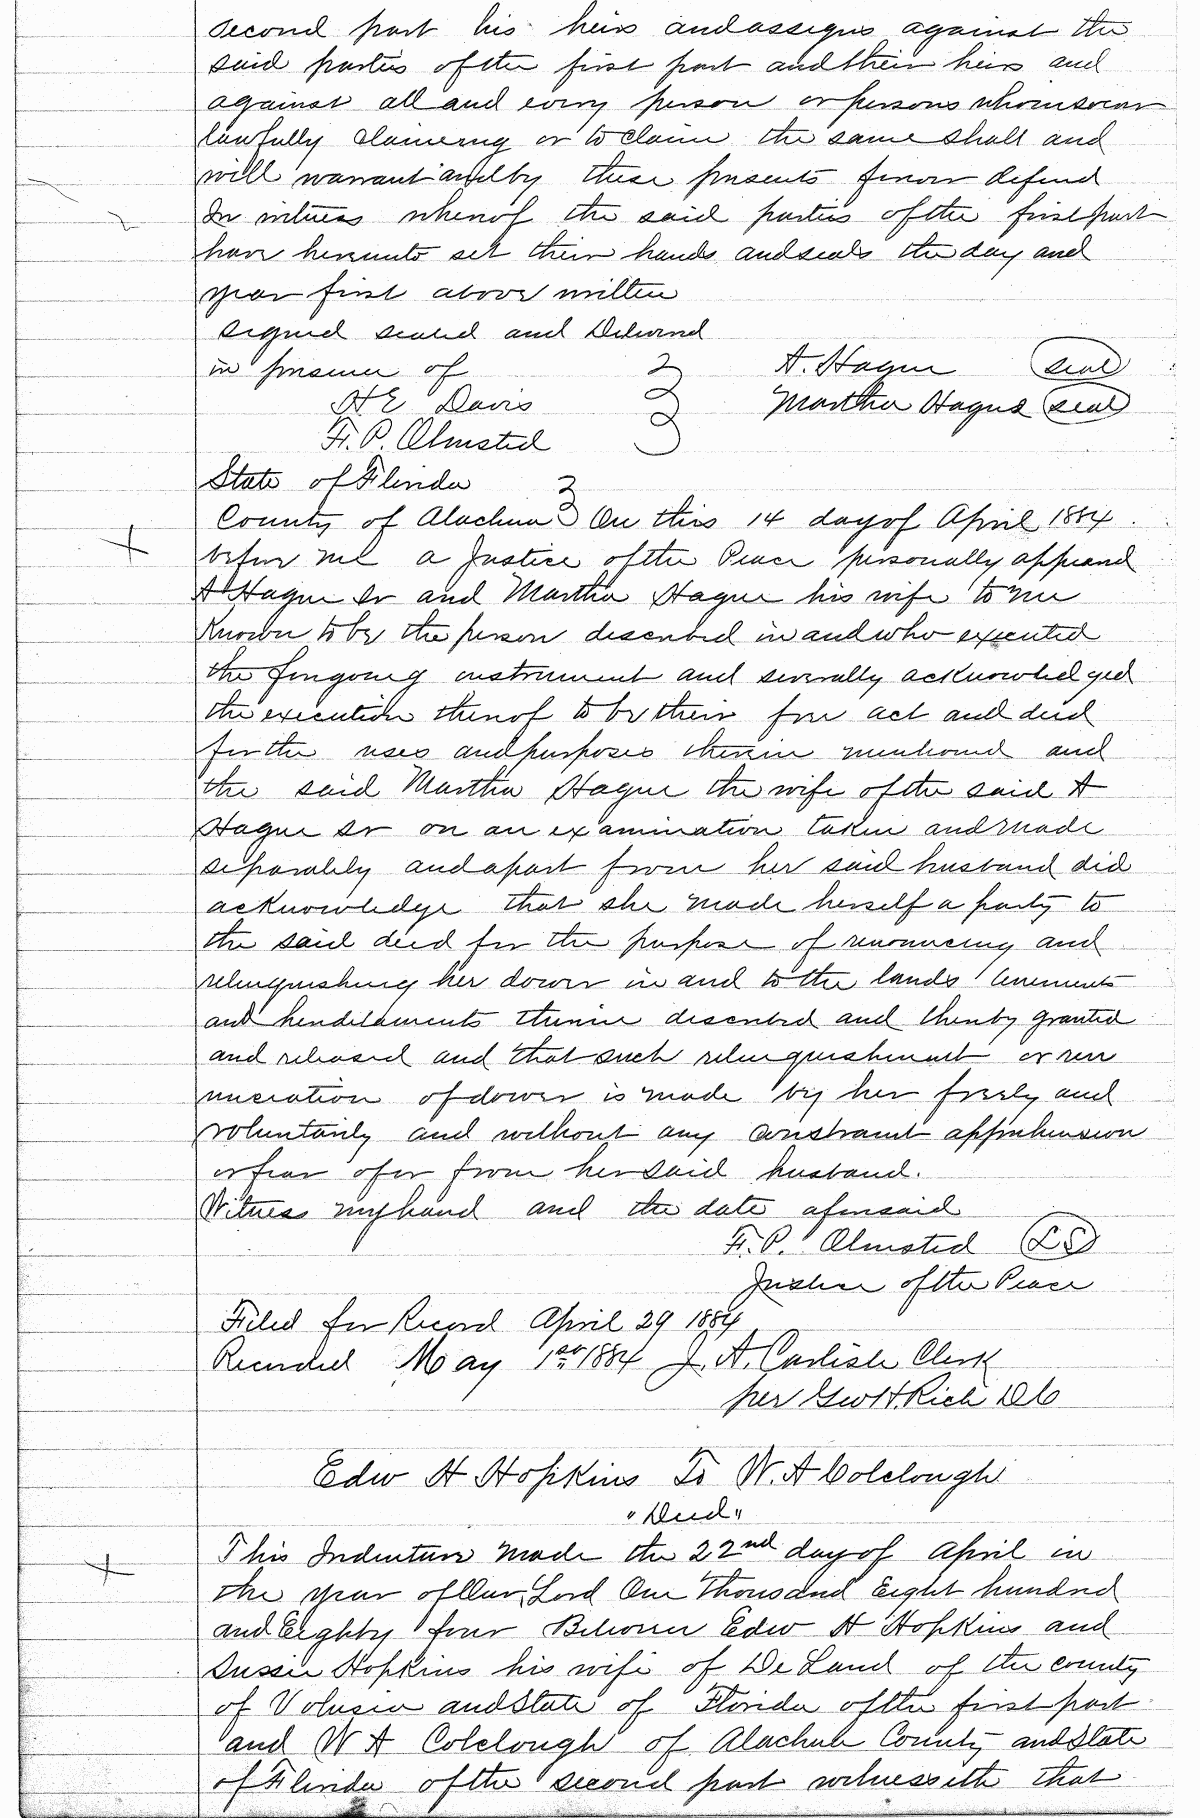 second part his heirs and assigns against the
said parties of the first part and their heirs and
against all and every person or persons whomsoever
lawfully claiming or to claim the same shall and
will warrant and by these presents forever defend
In witness whereof the said parties of the first part
have hereunto set their hands and seals the day and
year first above written
signed sealed and Delivered
in presence of A. Hague seal
H E Davis Martha Hague seal
F. P. Olmsted
State of Florida
County of Alachua On this 14 day of April 1884.
before me a Justice of the Peace personally appeared
A Hague Sr and Martha Hague his wife to me
Known to be the person described in and who executed
the foregoing instrument and severally acknowledged
the execution thereof to be their free act and deed
for the uses and purposes therein mentioned and
the said Martha Hague the wife of the said A
Hague Sr on an examination taken and made
separately and apart from her said husband did
acknowledge that she made herself a party to
the said deed for the purpose of renouncing and
relinquishing her dower in and to the lands tenements
and hereditaments therein described and thereby granted
and released and that such relinquishment or ren
unciation of dower is made by her freely and
voluntarily and without any constraint apprehension
or fear of or from her said husband.
Witness my hand and the date aforesaid
F. P. Olmsted LS
Justice of the Peace
Filed for Record April 29 1884
Recorded May 1st 1884 J. A. Carlisle Clerk
per Geo H. Rich DC
Edw H Hopkins To W. A Colclough
"Deed"
This Indenture made the 22nd day of April in
the year of Our Lord One Thousand Eight hundred
and Eighty four Between Edw H Hopkins and
Sussie Hopkins his wife of De Land of the county
of Volusia and State of Florida of the first part
and W A Colclough of Alachua County and State
of Florida of the second part witnesseth that